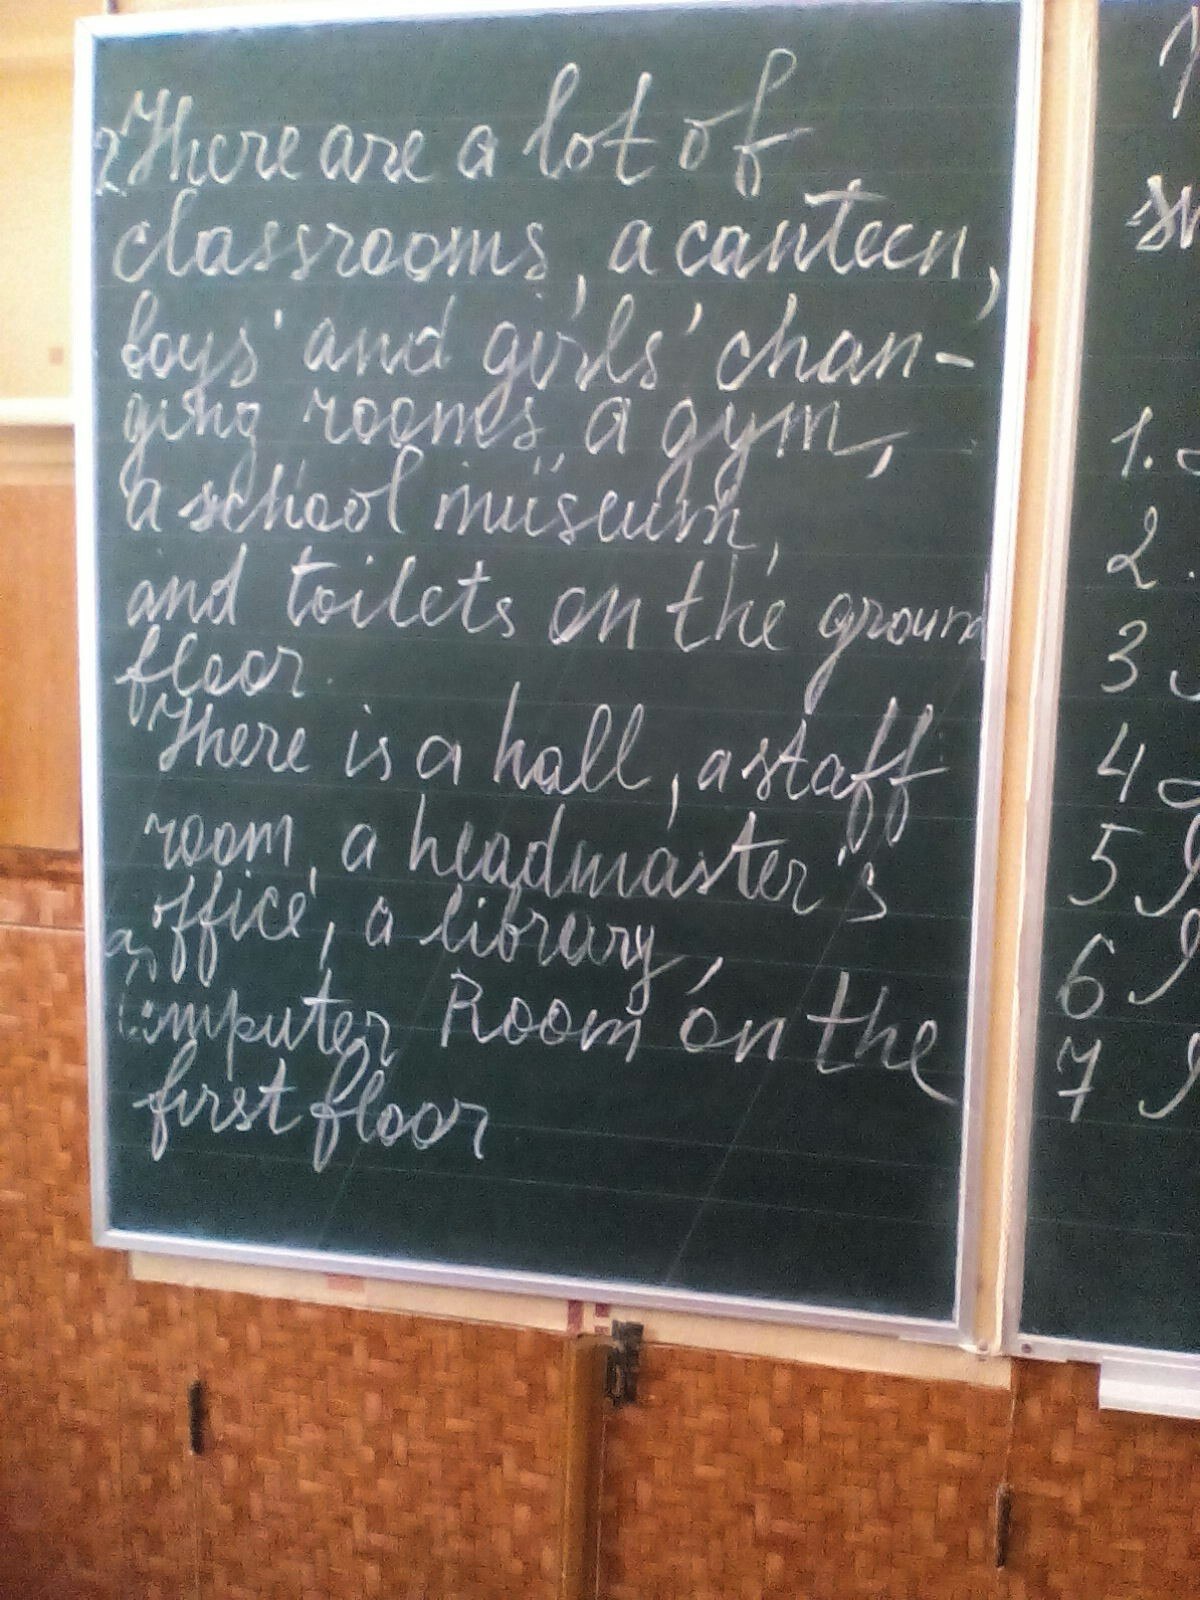 2 There are a lot of
classrooms, a canteen,
boys' and girls' chan-
ging rooms, a gym,
a school museum,
and toilets on the ground
floor.
There is a hall, a staff
room, a headmaster's
office, a library,
computer Room on the
first floor
1.
2.
3
4
5
6
7